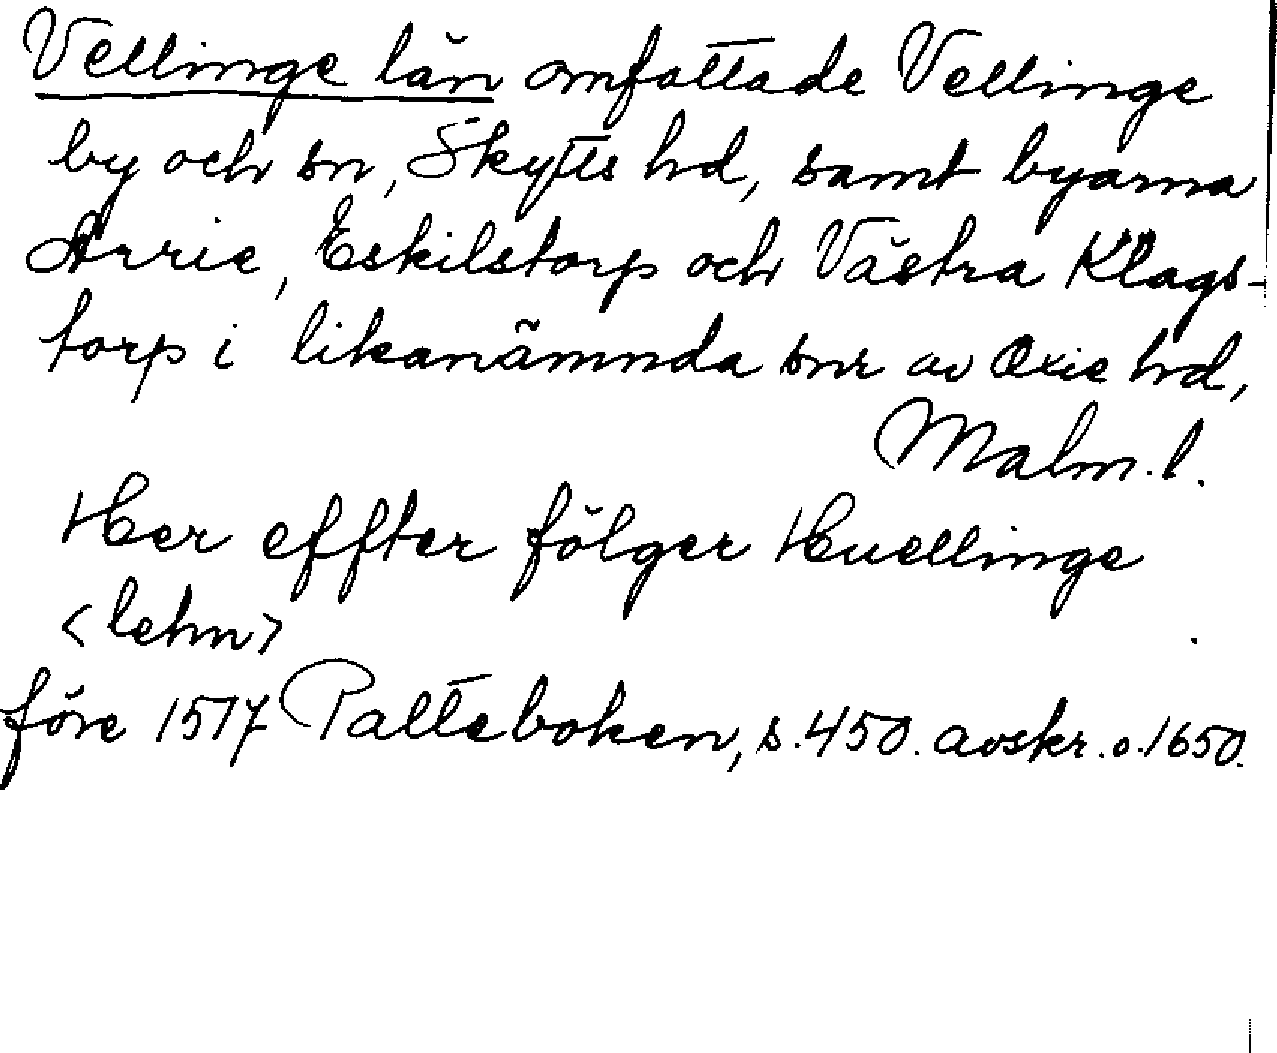 Vellinge län omfattade Vellinge
by och sn, Skytts hd, samt byarna
Arrie, Eskilstorp och Västra Klags-
torp i likanämnda snr av Oxie hd,
Malm. l.
Her effter fölger Huellinge
<lehn>
före 1517 Palteboken, s. 450. avskr. o. 1650.